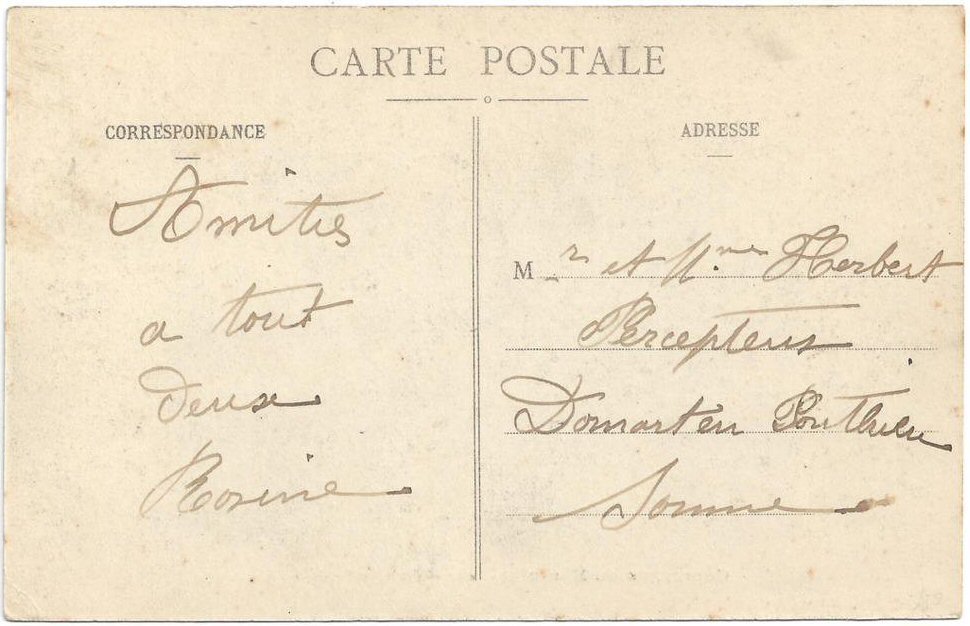 CARTE POSTALE
CORRESPONDANCE
Amitiés
a tout
deux
Rosine
ADRESSE
M r et Mme Herbert
Percepteur
Domart en Ponthieu
Somme